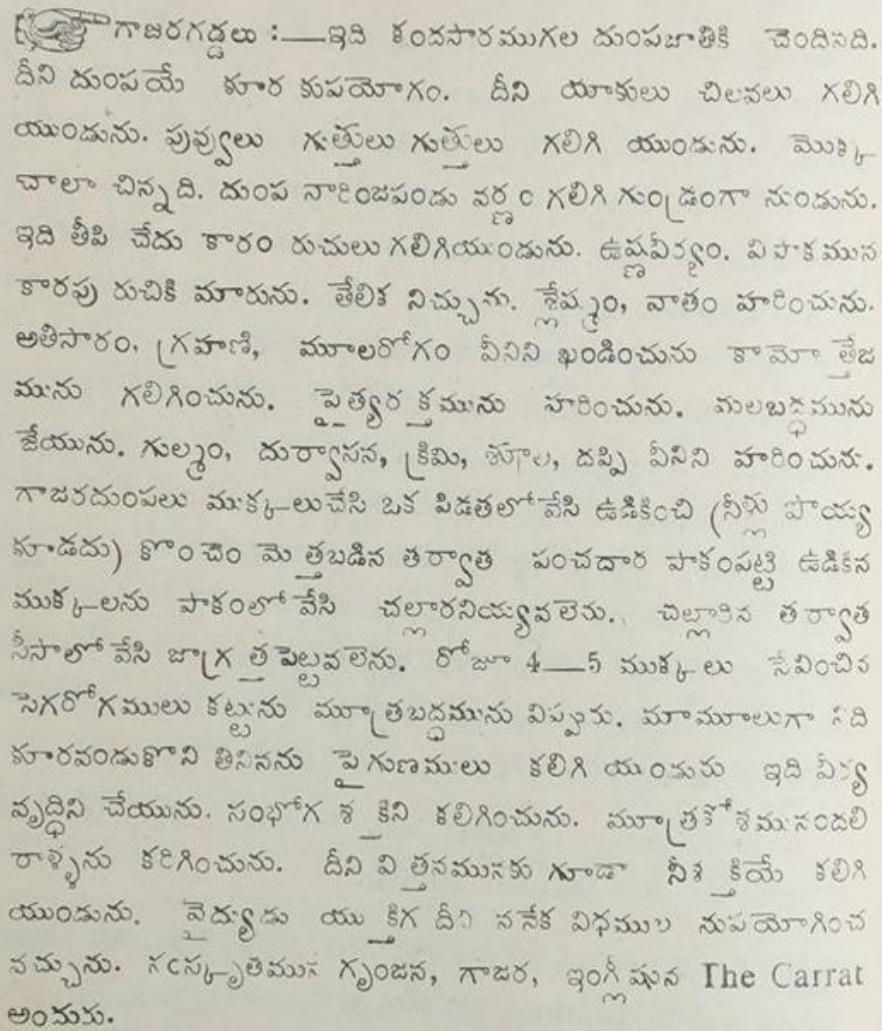 గాజరగడ్డలు :—ఇది కందసారముగల దుంపజాతికి చెందినది.
దీని దుంపయే కూర కుపయోగం. దీని యాకులు చిలవలు గలిగి
యుండును. పువ్వులు గుత్తులు గుత్తులు గలిగి యుండును. మొక్క
చాలా చిన్నది. దుంప నారింజపండు వర్ణం గలిగి గుండ్రంగా నుండును.
ఇది తీపి చేదు కారం రుచులు గలిగియుండును. ఉష్ణవీర్యం. విపాకమున
కారపు రుచికి మారును. తేలిక నిచ్చును. శ్లేష్మం, వాతం హరించును.
అతిసారం, గ్రహణి, మూలరోగం వీనిని ఖండించును కామో త్తేజ
మును గలిగించును. పైత్యరక్తమును హరించును. మలబద్ధమును
జేయును. గుల్మం, దుర్వాసన, క్రిమి, శూల, దప్పి వీనిని హరించును.
గాజరదుంపలు ముక్కలుచేసి ఒక పిడతలో వేసి ఉడికించి (నీళ్లు పొయ్య
కూడదు) కొంచెం మెత్తబడిన తర్వాత పంచదార పాకంపట్టి ఉడికిన
ముక్కలను పాకంలో వేసి చల్లారనియ్యవలెను. చల్లారిన తర్వాత
సీసాలో వేసి జాగ్రత్త పెట్టవలెను. రోజూ 4—5 ముక్కలు సేవించిన
సెగరోగములు కట్టును మూత్రబద్ధమును విప్పును. మామూలుగా నిది
కూరవండుకొని తినినను పై గుణములు కలిగి యుండును ఇది వీర్య
వృద్ధిని చేయును. సంభోగ శక్తిని కలిగించును. మూత్రకోశమునందలి
రాళ్ళను కరిగించును. దీని విత్తనమునకు గూడా నీశక్తియే కలిగి
యుండును. వైద్యుడు యుక్తిగ దీని ననేక విధముల నుపయోగించ
వచ్చును. సంస్కృతమున గృంజన, గాజర, ఇంగ్లీషున The Carrat
అందురు.